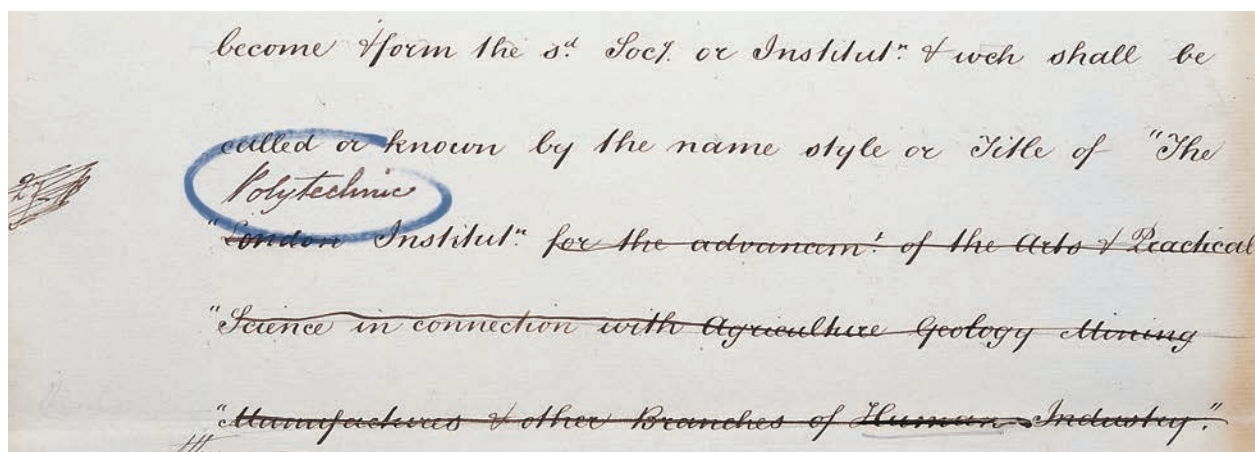 become & form the sd. Socy. or Institutn. & wch shall be
called or known by the name style or Title of "The
Polytechnic
"London Institutn. for the advancemt. of the Arts & Practical
"Science in connection with Agriculture Geology Mining
"Manufactures & other Branches of Human Industry."